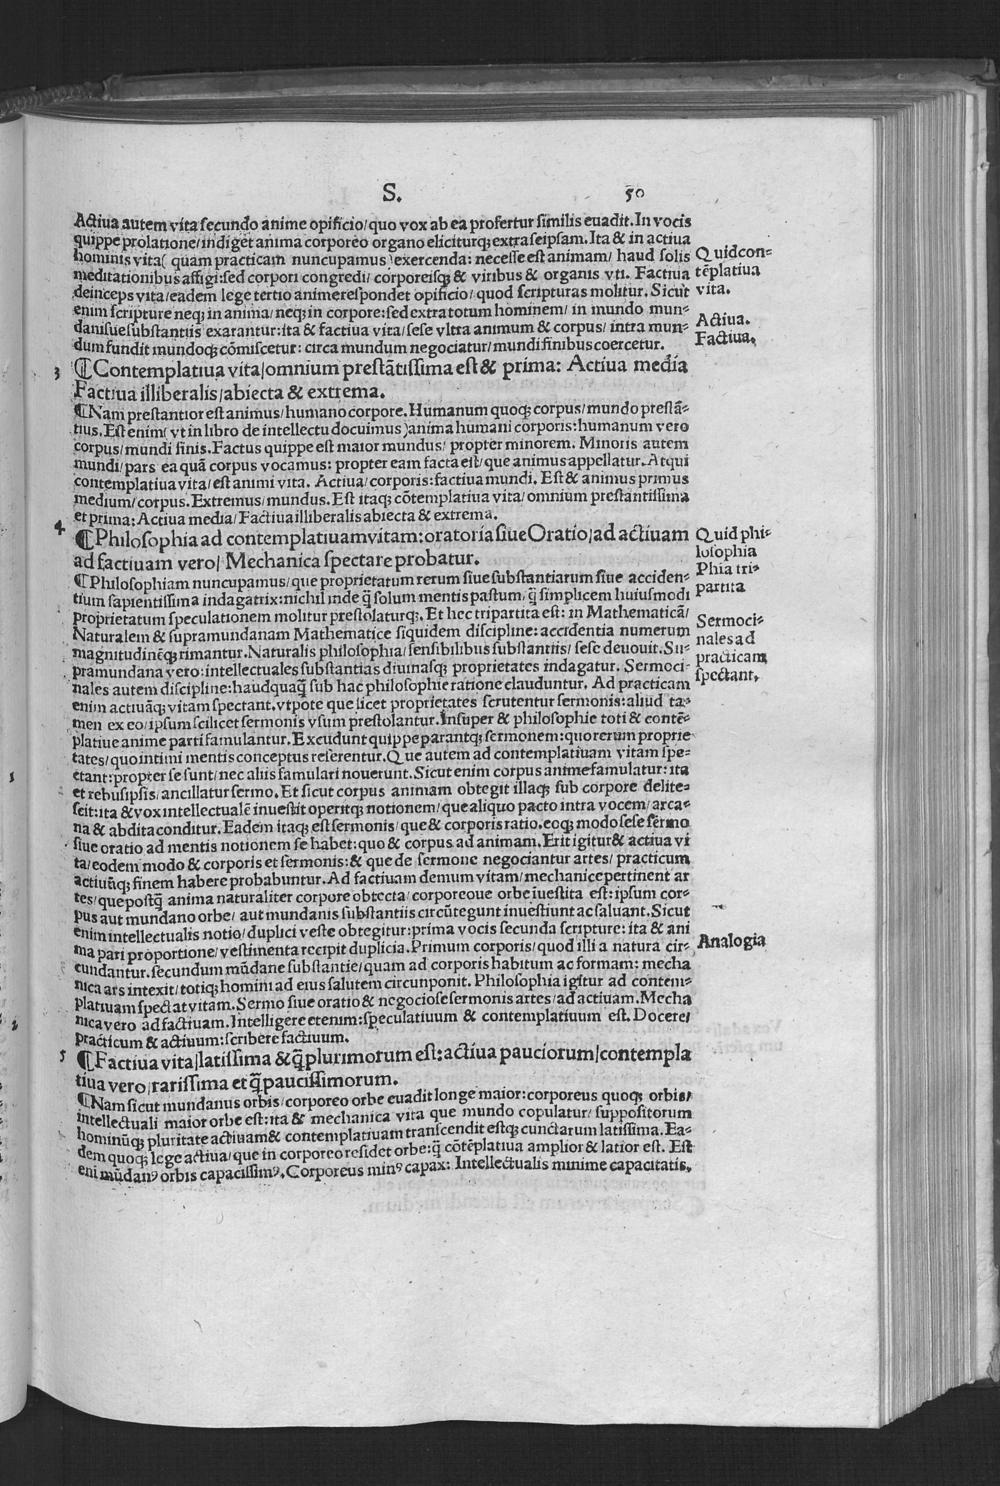 S. 50
Actiua autem vita secundo anime opificio/quo vox ab ea profertur similis euadit. In vocis
quippe prolatione/indiget anima corporeo organo eliciturq; extra seipsam. Ita & in actiua
hominis vita( quam practicam nuncupamus )exercenda: necesse est animam/ haud solis
meditationibus affigi: sed corpori congredi/ corporeisq; & viribus & organis vti. Factiua
deinceps vita/eadem lege tertio anime respondet opificio/ quod scripturas molitur. Sicut
enim scripture neq; in anima/ neq; in corpore: sed extra totum hominem/ in mundo mun-
danisue substantiis exarantur: ita & factiua vita/ sese vltra animum & corpus/ intra mun-
dum fundit mundoq; cōmiscetur: circa mundum negociatur/ mundi finibus coercetur.
Quid con-
tēplatiua
vita.
Actiua.
Factiua.
3 ¶Contemplatiua vita/omnium prestātissima est & prima: Actiua media
Factiua illiberalis/abiecta & extrema.
¶Nam prestantior est animus/humano corpore. Humanum quoq; corpus/mundo prestā-
tius. Est enim( vt in libro de intellectu docuimus )anima humani corporis: humanum vero
corpus/mundi finis. Factus quippe est maior mundus/ propter minorem. Minoris autem
mundi/pars ea quā corpus vocamus: propter eam facta est/que animus appellatur. Atqui
contemplatiua vita/est animi vita. Actiua/corporis: factiua mundi. Est & animus primus
medium/corpus. Extremus/mundus. Est itaq; cōtemplatiua vita/omnium prestantissima
et prima: Actiua media/Factiua illiberalis abiecta & extrema.
4 ¶Philosophia ad contemplatiuam vitam: oratoria siue Oratio/ad actiuam
ad factiuam vero/ Mechanica spectare probatur.
¶Philosophiam nuncupamus/que proprietatum rerum siue substantiarum siue acciden-
tium sapientissima indagatrix: nichil inde q̄ solum mentis pastum/q̄ simplicem huiusmodi
proprietatum speculationem molitur prestolaturq;. Et hec tripartita est: in Mathematicā/
Naturalem & supramundanam Mathematice siquidem discipline: accidentia numerum
magnitudinēq; rimantur. Naturalis philosophia/sensibilibus substantiis/ sese deuouit. Su-
pramundana vero: intellectuales substantias diuinasq; proprietates indagatur. Sermoci-
nales autem discipline: haudquaq̄ sub hac philosophie ratione clauduntur. Ad practicam
enim actiuāq; vitam spectant. vtpote que licet proprietates scrutentur sermonis: aliud ta-
men ex eo/ipsum scilicet sermonis vsum prestolantur. Insuper & philosophie toti & contē-
platiue anime parti famulantur. Excudunt quippe parantq; sermonem: quo rerum proprie
tates/quo intimi mentis conceptus reserentur. Que autem ad contemplatiuam vitam spe-
ctant: propter se sunt/nec aliis famulari nouerunt. Sicut enim corpus anime famulatur: ita
et rebus ipsis/ancillatur sermo. Et sicut corpus animam obtegit illaq; sub corpore delite-
scit: ita & vox intellectualē inuestit operitq; notionem/que aliquo pacto intra vocem/arca-
na & abdita conditur. Eadem itaq; est sermonis/que & corporis ratio. eoq; modo sese sermo
siue oratio ad mentis notionem se habet: quo & corpus ad animam. Erit igitur & actiua vi
ta/eodem modo & corporis et sermonis: & que de sermone negociantur artes/ practicum
actiuūq; finem habere probabuntur. Ad factiuam demum vitam/mechanice pertinent ar
tes/que postq̄ anima naturaliter corpore obtecta/corporeoue orbe īuestita est: ipsum cor-
pus aut mundano orbe/aut mundanis substantiis circūtegunt inuestiunt ac saluant. Sicut
enim intellectualis notio/duplici veste obtegitur: prima vocis secunda scripture: ita & ani
ma pari proportione/vestimenta recipit duplicia. Primum corporis/quod illi a natura cir-
cundantur. secundum mūdane substantie/quam ad corporis habitum ac formam: mecha
nica ars intexit/totiq; homini ad eius salutem circunponit. Philosophia igitur ad contem-
platiuam spectat vitam. Sermo siue oratio & negociose sermonis artes/ad actiuam. Mecha
nica vero ad factiuam. Intelligere etenim: speculatiuum & contemplatiuum est. Docere/
practicum & actiuum: scribere factiuum.
Quid phi-
losophia
Phia tri-
partita
Sermoci-
nales ad
practicam
spectant.
Analogia
5 ¶Factiua vita/latissima & q̄ plurimorum est: actiua pauciorum/contempla
tiua vero/rarissima et q̄ paucissimorum.
¶Nam sicut mundanus orbis/corporeo orbe euadit longe maior: corporeus quoq; orbis/
intellectuali maior orbe est: ita & mechanica vita que mundo copulatur/suppositorum
hominūq; pluritate actiuam & contemplatiuam transcendit estq; cunctarum latissima. Ea-
dem quoq; lege actiua/que in corporeo residet orbe: q̄ cōtēplatiua amplior & latior est. Est
eni mūdanꝰ orbis capacissimꝰ. Corporeus minꝰ capax: Intellectualis minime capacitatis.